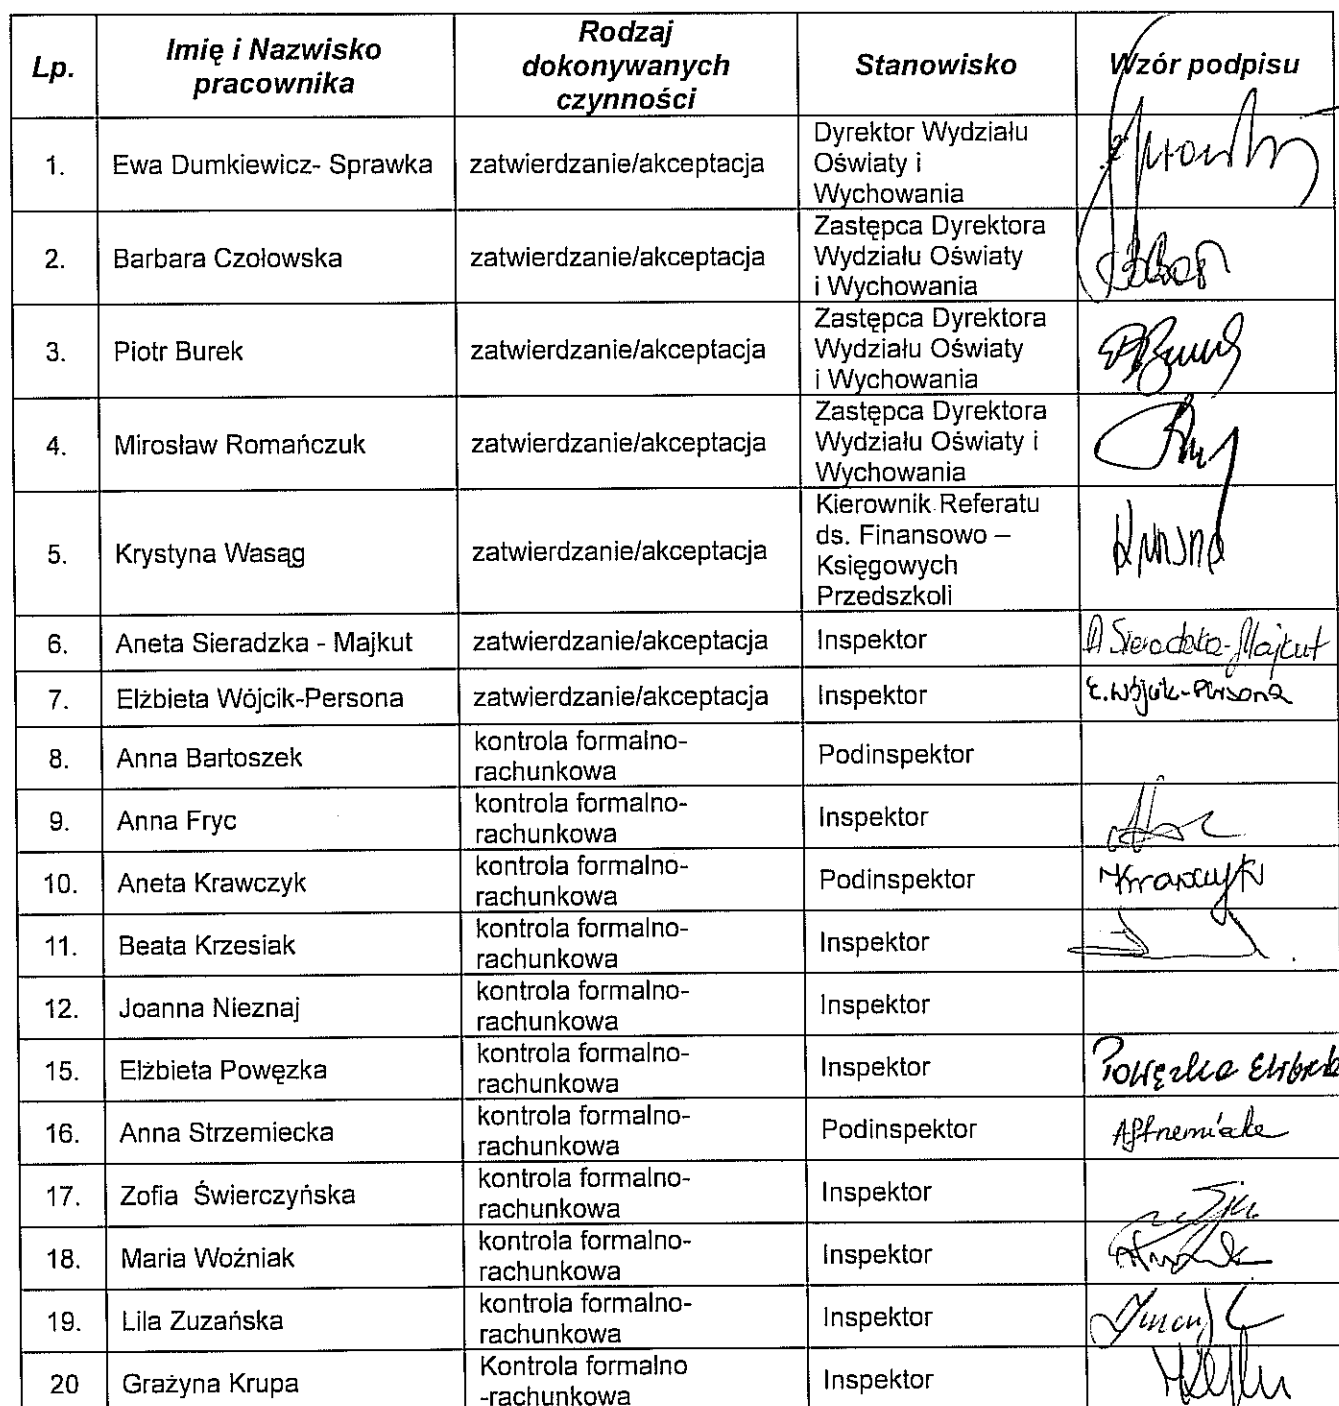 Lp.
Imię i Nazwisko
pracownika
Rodzaj
dokonywanych
czynności
Stanowisko
Wzór podpisu
1.
Ewa Dumkiewicz- Sprawka
zatwierdzanie/akceptacja
Dyrektor Wydziału
Oświaty i
Wychowania
2.
Barbara Czołowska
zatwierdzanie/akceptacja
Zastępca Dyrektora
Wydziału Oświaty
i Wychowania
3.
Piotr Burek
zatwierdzanie/akceptacja
Zastępca Dyrektora
Wydziału Oświaty
i Wychowania
4.
Mirosław Romańczuk
zatwierdzanie/akceptacja
Zastępca Dyrektora
Wydziału Oświaty i
Wychowania
5.
Krystyna Wasąg
zatwierdzanie/akceptacja
Kierownik Referatu
ds. Finansowo –
Księgowych
Przedszkoli
6.
Aneta Sieradzka - Majkut
zatwierdzanie/akceptacja
Inspektor
A Sieradzka-Majkut
7.
Elżbieta Wójcik-Persona
zatwierdzanie/akceptacja
Inspektor
E.Wójcik-Persona
8.
Anna Bartoszek
kontrola formalno-
rachunkowa
Podinspektor
9.
Anna Fryc
kontrola formalno-
rachunkowa
Inspektor
10.
Aneta Krawczyk
kontrola formalno-
rachunkowa
Podinspektor
11.
Beata Krzesiak
kontrola formalno-
rachunkowa
Inspektor
12.
Joanna Nieznaj
kontrola formalno-
rachunkowa
Inspektor
15.
Elżbieta Powęzka
kontrola formalno-
rachunkowa
Inspektor
Powęzka Elżbieta
16.
Anna Strzemiecka
kontrola formalno-
rachunkowa
Podinspektor
17.
Zofia Świerczyńska
kontrola formalno-
rachunkowa
Inspektor
18.
Maria Woźniak
kontrola formalno-
rachunkowa
Inspektor
19.
Lila Zuzańska
kontrola formalno-
rachunkowa
Inspektor
20
Grażyna Krupa
Kontrola formalno
-rachunkowa
Inspektor